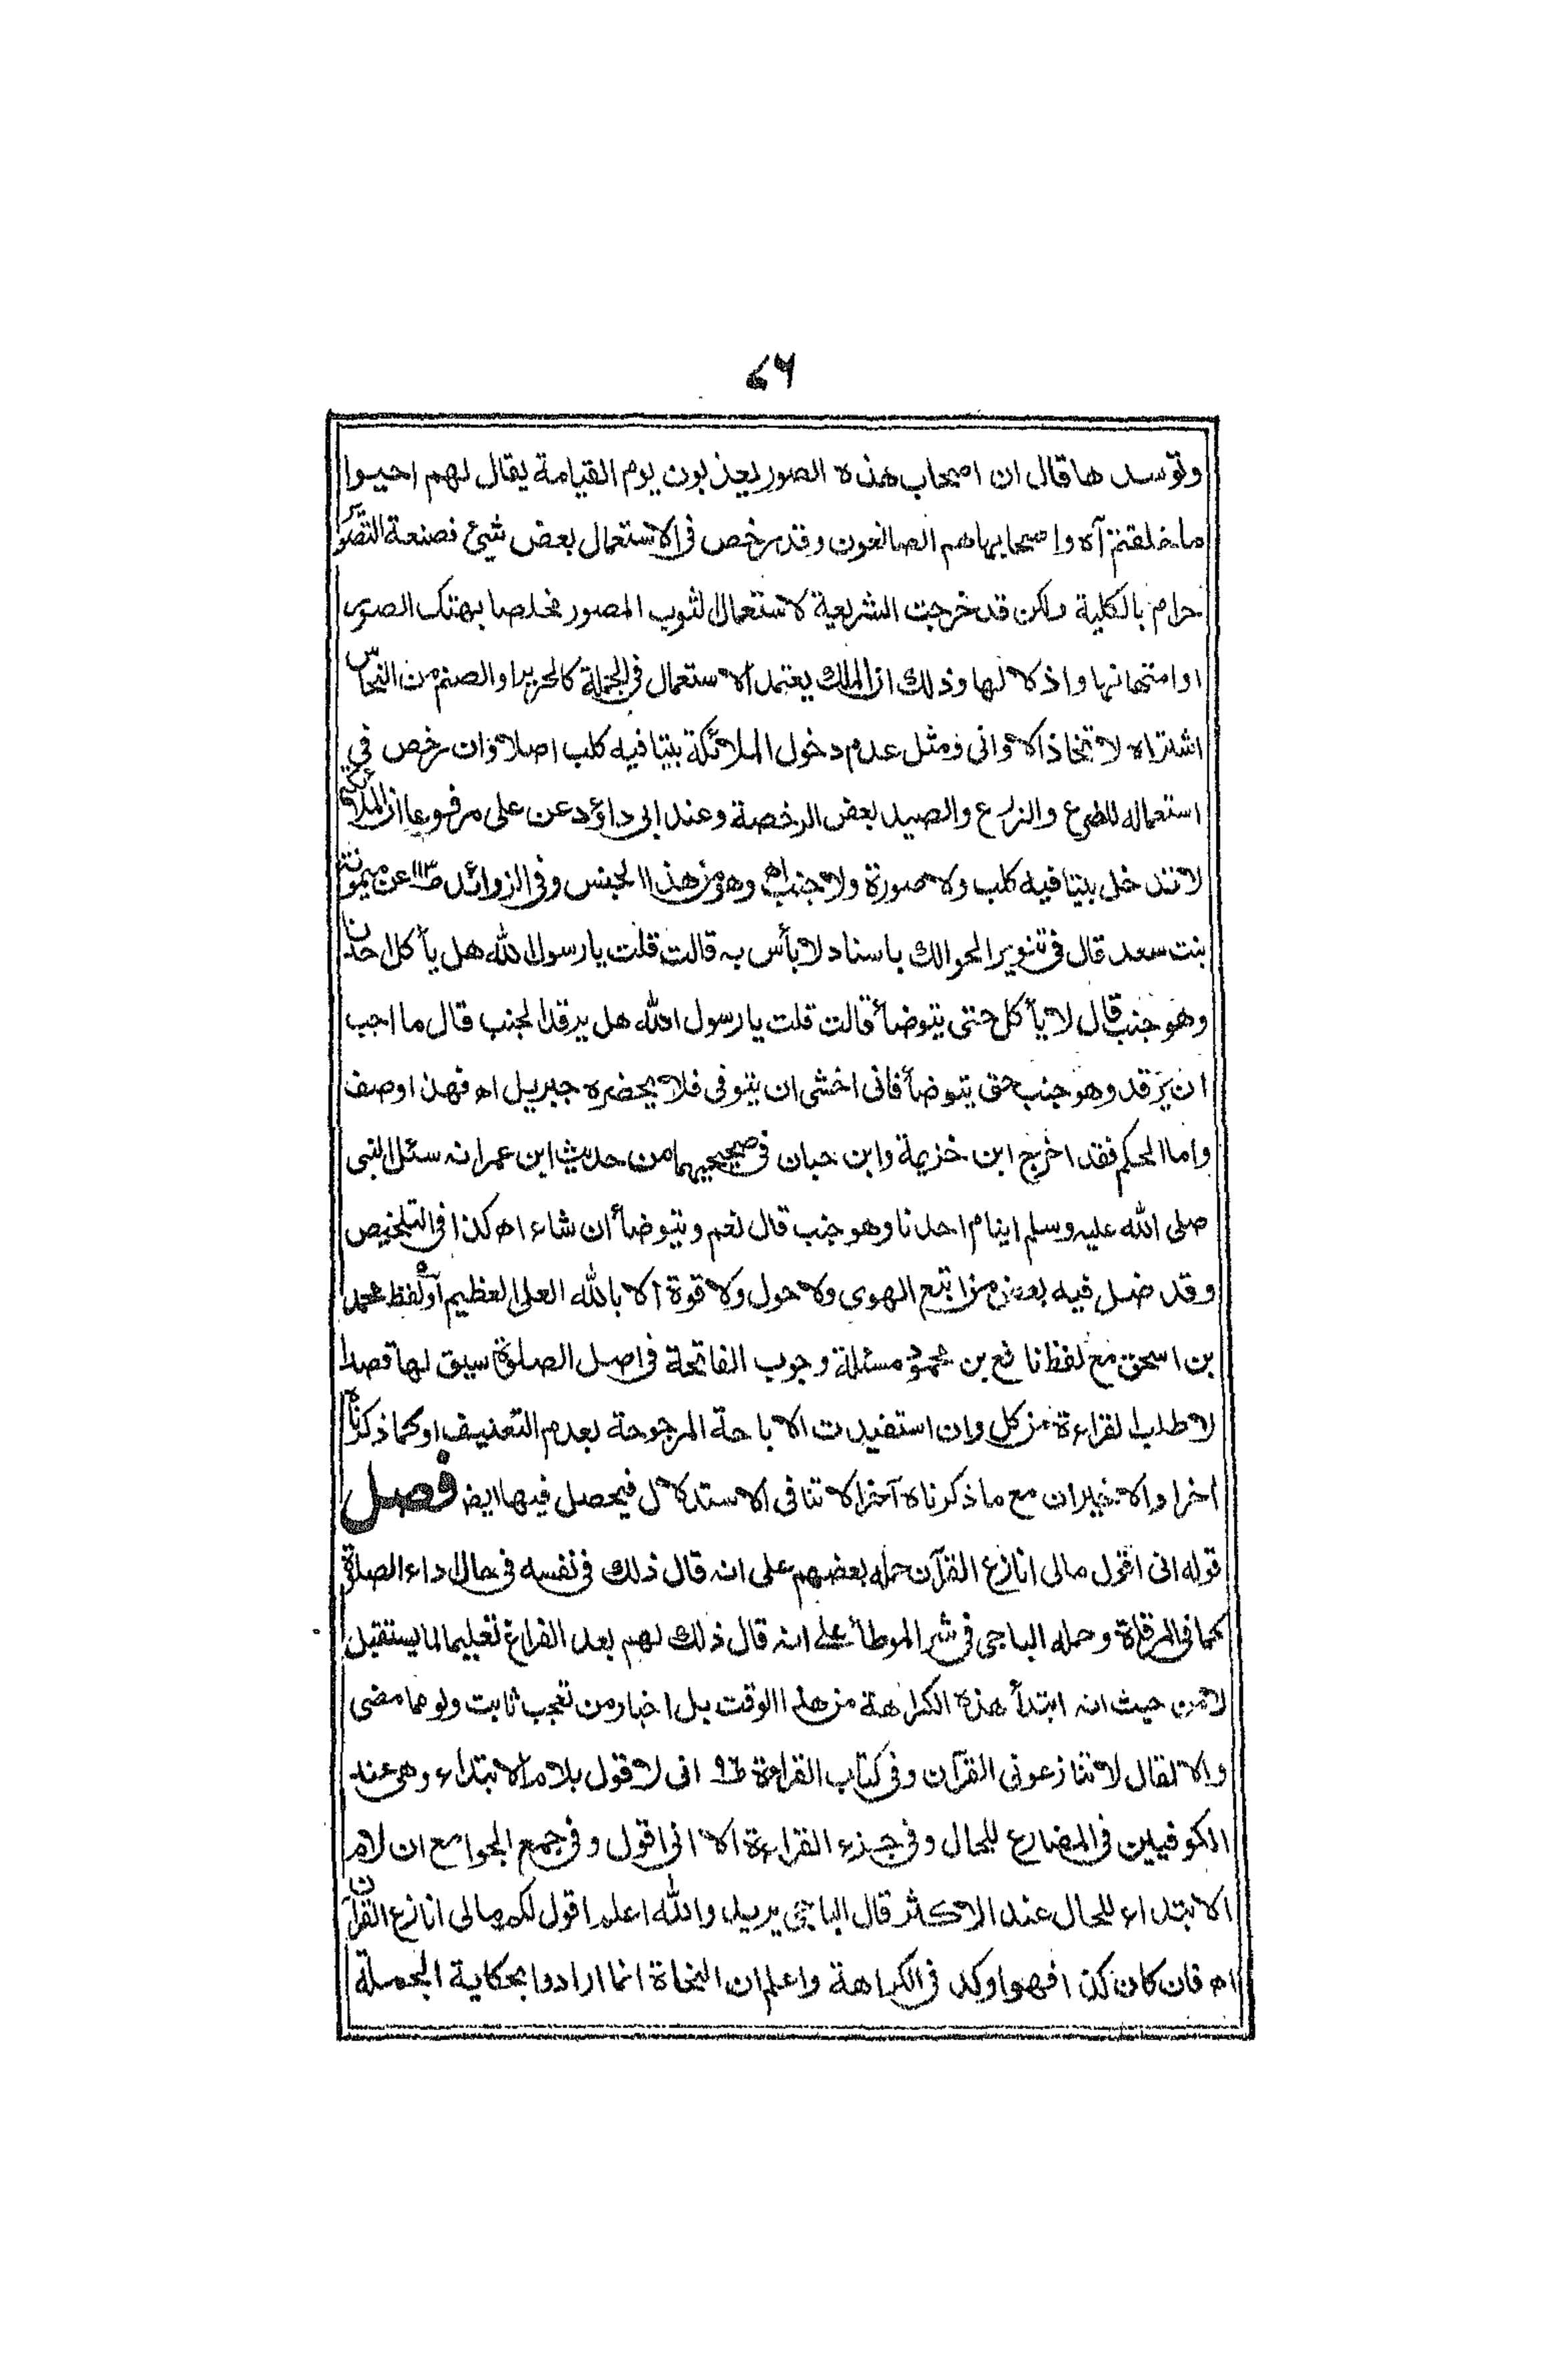 ٧٦
وتوسد هاقال ان اصحاب هذه الصور يعذبون يوم القيامة يقال لهم احيوا
ما خلقتم آه واصحابها هم الصانعون وقد رخص فى الاستعمال بعض شئ فصنعة التصوير
حرام بالكلية ولكن قد خرجت الشريعة لاستعمال الثوب المصور مخلصا بهتك الصور
او امتهانها واذلالها وذلك ان الملك يعتمد الاستعمال فى الجملة كالحرير او الصنم من النحاس
اشتراه لاتخاذ الاوانى ومثل عدم دخول الملائكة بيتا فيه كلب اصلا وان رخص في
استعماله للضرع والزرع والصيد لبعض الرخصة وعند ابى داؤد عن على مرفوعا ان الملائكة
لا تدخل بيتا فيه كلب ولا صورة ولا جنب اه وهو من هذا الجنس وفى الزوائد ص١١٣ عن ميمونة
بنت سعد قال فى تنوير الحوالك باسناد لا بأس به قالت قلت يا رسول الله هل يأكل احدنا
وهو جنب قال لا يأكل حتى يتوضأ قالت قلت يا رسول الله هل يرقد الجنب قال ما احب
ان يرقد وهو جنب حتى يتوضأ فانى اخشى ان يتوفى فلا يحضره جبريل اه فهذا وصف
واما الحكم فقد اخرج ابن خزيمة وابن حبان فى صحيحيهما من حديث ابن عمر انه سئل النبى
صلى الله عليه وسلم اينام احدنا وهو جنب قال نعم ويتوضأ ان شاء اه كذا فى التلخيص
وقد ضل فيه بعض من اتبع الهوى ولا حول ولا قوة الا بالله العلى العظيم او لفظ محمد
بن اسحق مع لفظ نافع بن محمود مسئلة وجوب الفاتحة فى اصل الصلوة سيق لها قصدا
لا طلب القراءة من كل وان استفيدت الاباحة المرجوحة بعدم التعنيف او كما ذكرناه
اخرا والاخيران مع ما ذكرناه آخرا لا تنافى الاستدلال فيحصل فيها ايضا فصل
قوله انى اقول مالى انازع القرآن حمله بعضهم على انه قال ذلك فى نفسه فى حال اداء الصلاة
كما فى المرقاة وحمله الباجى فى شرح الموطأ على انه قال ذلك لهم بعد الفراغ تعليما لما يستقبل
لا من حيث انه ابتدأ هذه الكراهة من هذا الوقت بل اخبار من تعجب ثابت ولو مما مضى
والا لقال لا تنازعونى القرآن وفى كتاب القراءة ص٩٦ انى لاقول بلام الابتداء وهى عند
الكوفيين فى المضارع للحال وفى جزء القراءة الا انى اقول وفى جمع الجوامع ان لام
الابتداء للحال عند الاكثر قال الباجى يريد والله اعلم اقول لكم مالى انازع القرآن
اه فان كان كذا فهو اوكد فى الكراهة واعلم ان النحاة انما ارادوا بحكاية الجملة